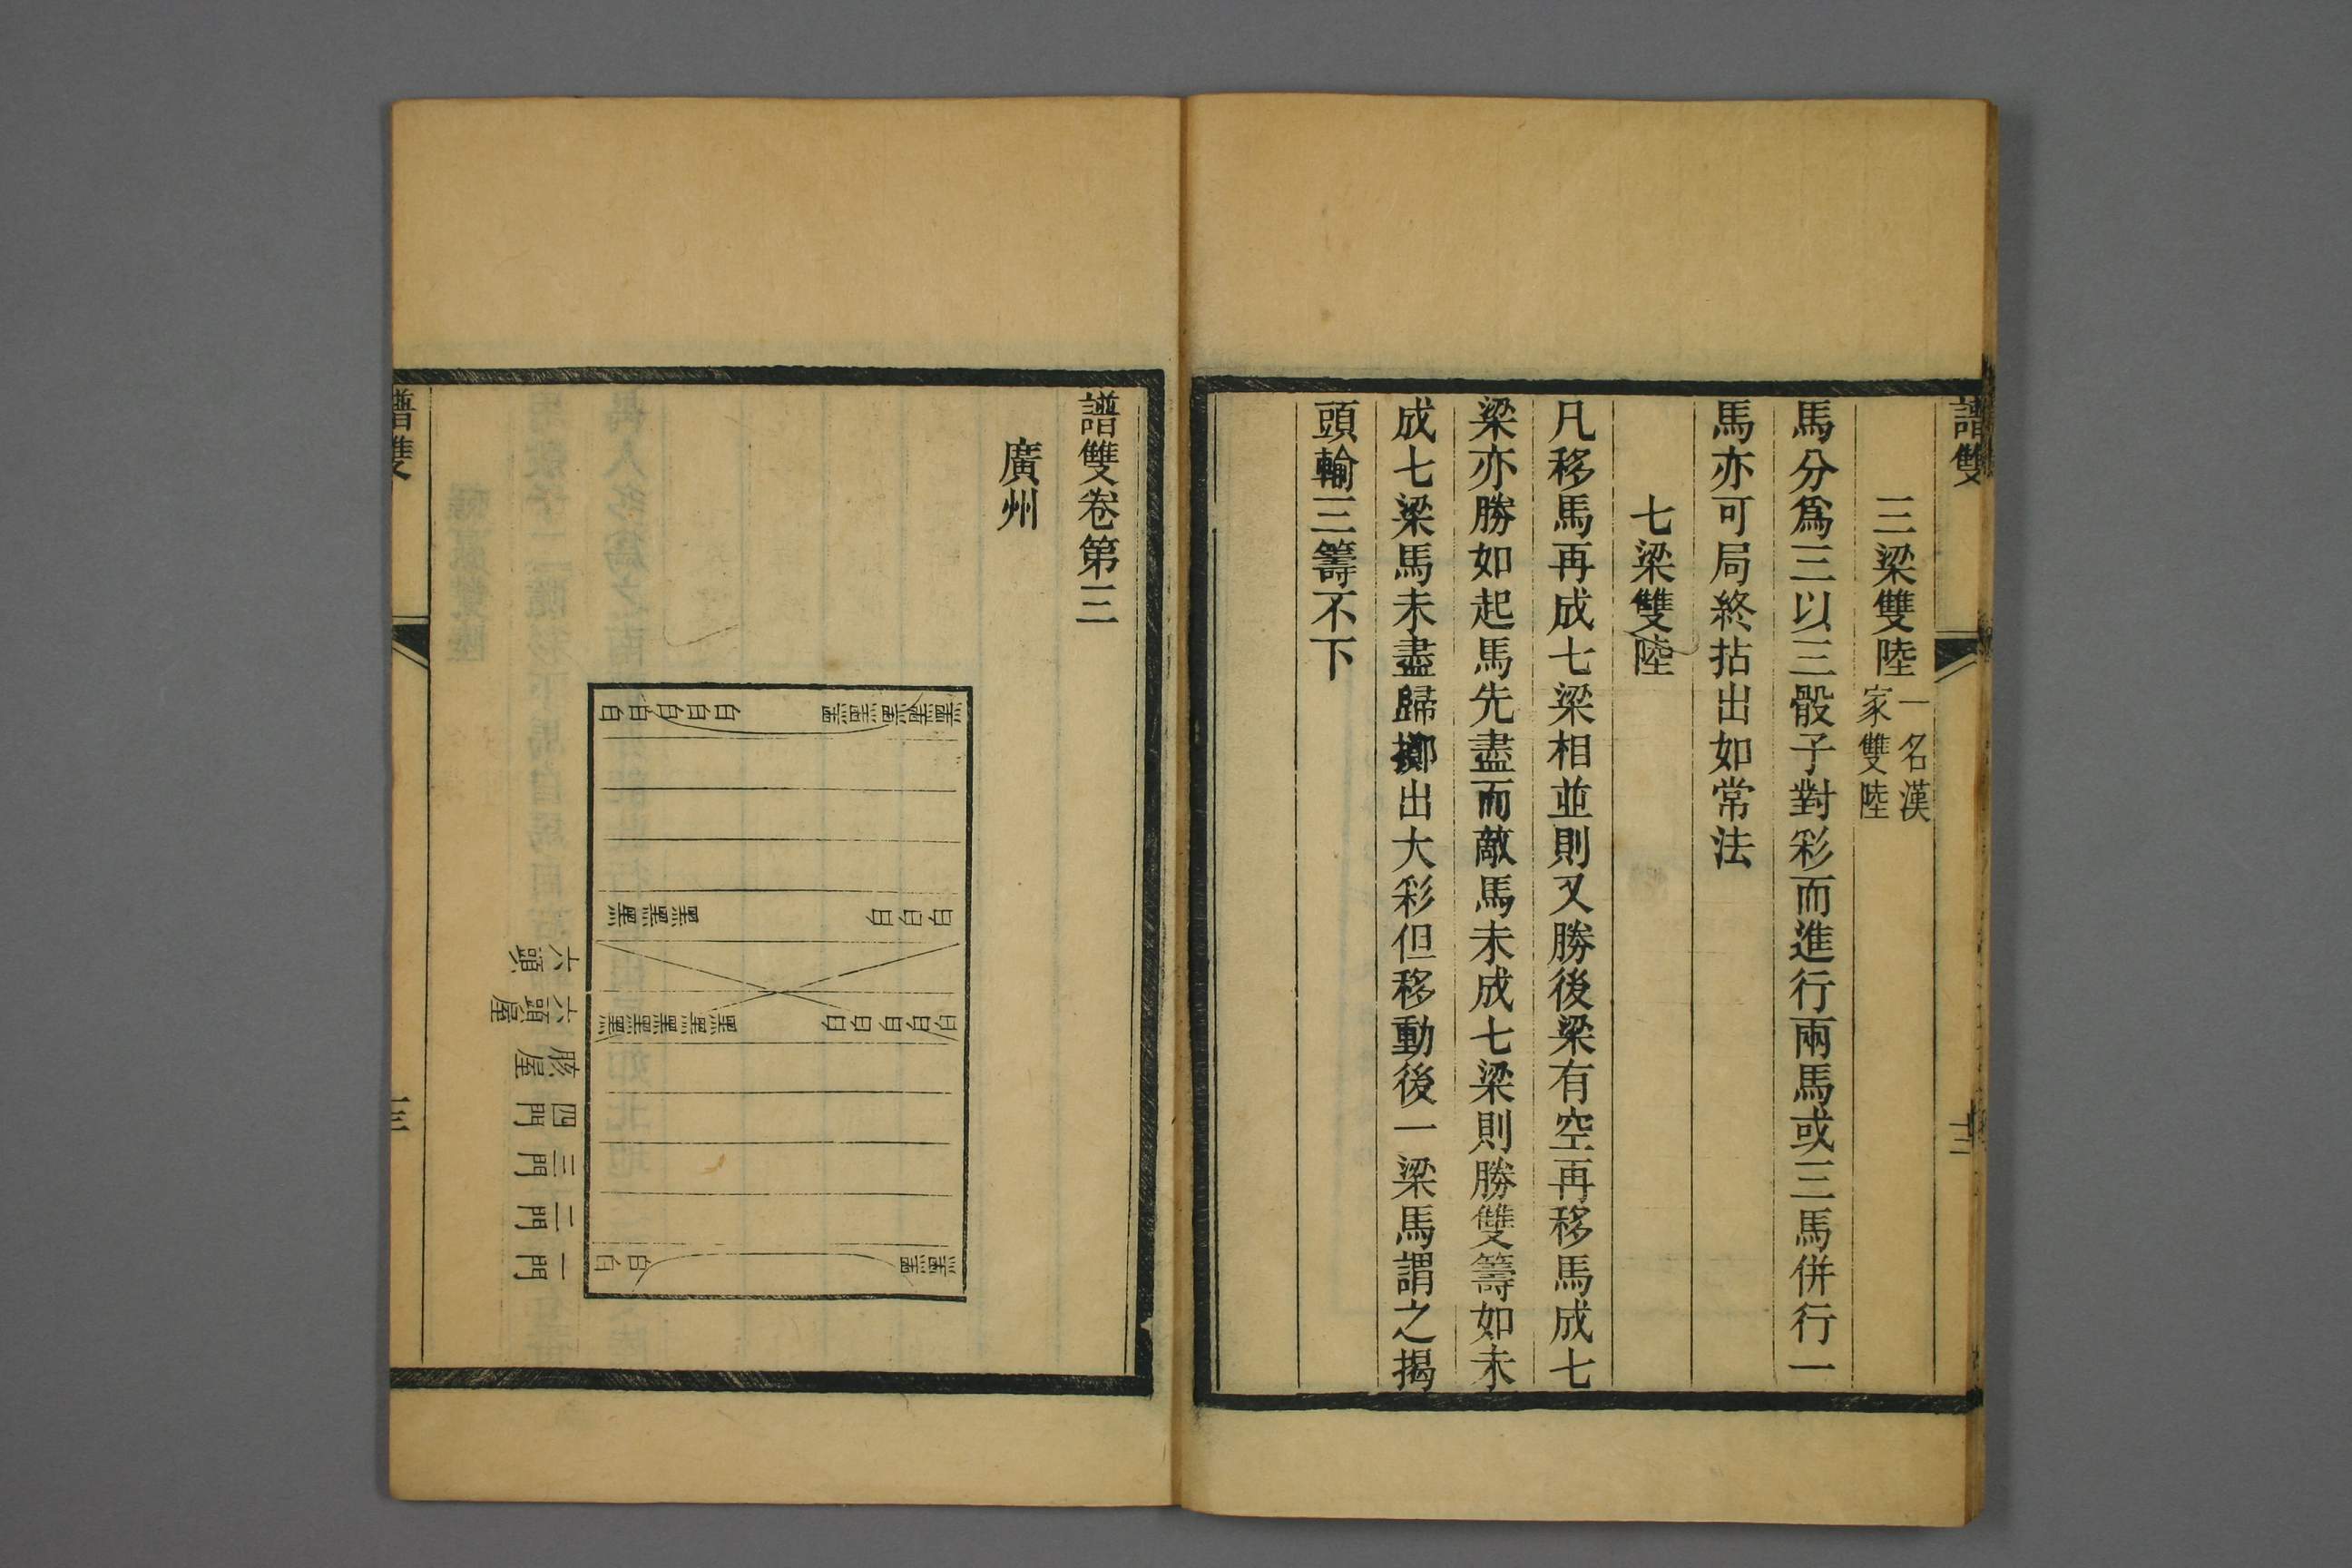 譜雙
十二
三梁雙陸一名漢家雙陸
馬分爲三以三骰子對彩而進行兩馬或三馬併行一
馬亦可局終拈出如常法
七梁雙陸
凡移馬再成七梁相並則又勝後梁有空再移馬成七
梁亦勝如起馬先盡而敵馬未成七梁則勝雙籌如未
成七梁馬未盡歸擲出大彩但移動後一梁馬謂之揭
頭輸三籌不下
譜雙卷第三
廣州
白白白白白
黑黑黑
白白白
黑黑黑黑黑
白白白白白
白白
六頭
六頭屋
豥屋
四門
三門
二門
一門
譜雙